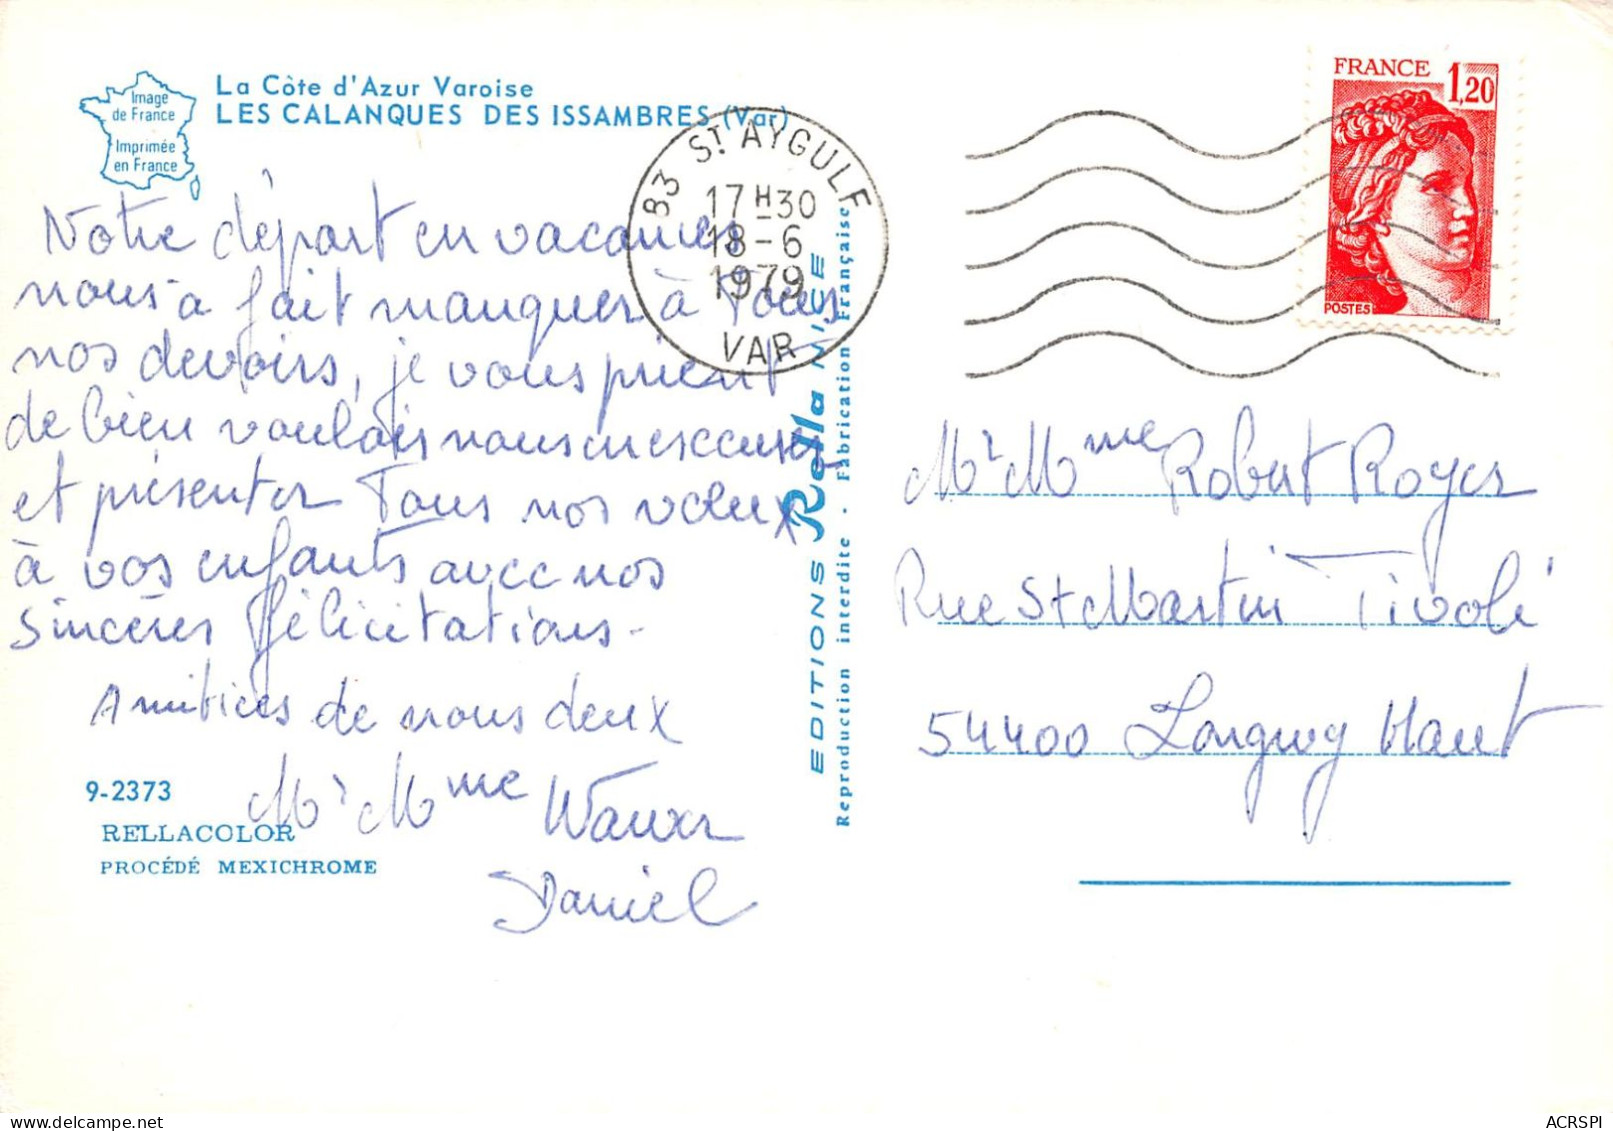 Image
de France
Imprimée
en France
La Côte d'Azur Varoise
LES CALANQUES DES ISSAMBRES (Var)
Notre départ en vacances
nous a fait manquer à Tous
nos devoirs, je vous prie
de bien vouloir nous en excuser
et présenter Tous nos vœux
à vos enfants avec nos
sincères félicitations.
Amitiés de nous deux
Mr Mme
Daniel
9-2373
RELLACOLOR
PROCÉDÉ MEXICHROME
83 ST AYGULF
17H30
18-6
1979
VAR
EDITIONS Rella NICE
Reproduction interdite - Fabrication Française
FRANCE 1,20
POSTES
Mr Mme Robert Royer
Rue St Martin Tivoli
54400 Longwy Haut
ACRSPI